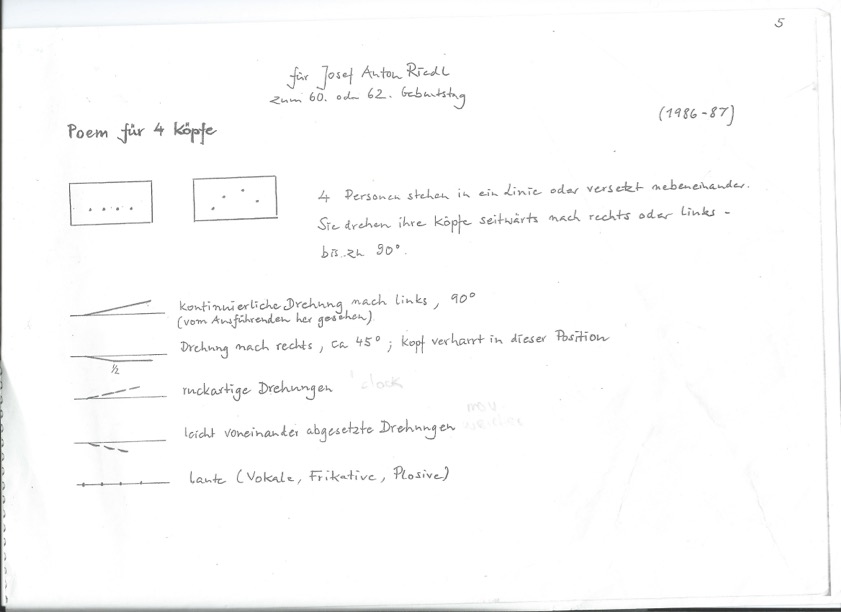 5
für Josef Anton Riedl
zum 60. oder 62. Geburtstag
(1986-87)
Poem für 4 Köpfe
4 Personen stehen in ein Linie oder versetzt nebeneinander.
Sie drehen ihre Köpfe seitwärts nach rechts oder links -
bis zu 90°.
kontinuierliche Drehung nach links, 90°
(vom Ausführenden her gesehen)
Drehung nach rechts, ca 45°; Kopf verharrt in dieser Position
1/2
ruckartige Drehungen 'clock
leicht voneinander abgesetzte Drehungen
Laute (Vokale, Frikative, Plosive)